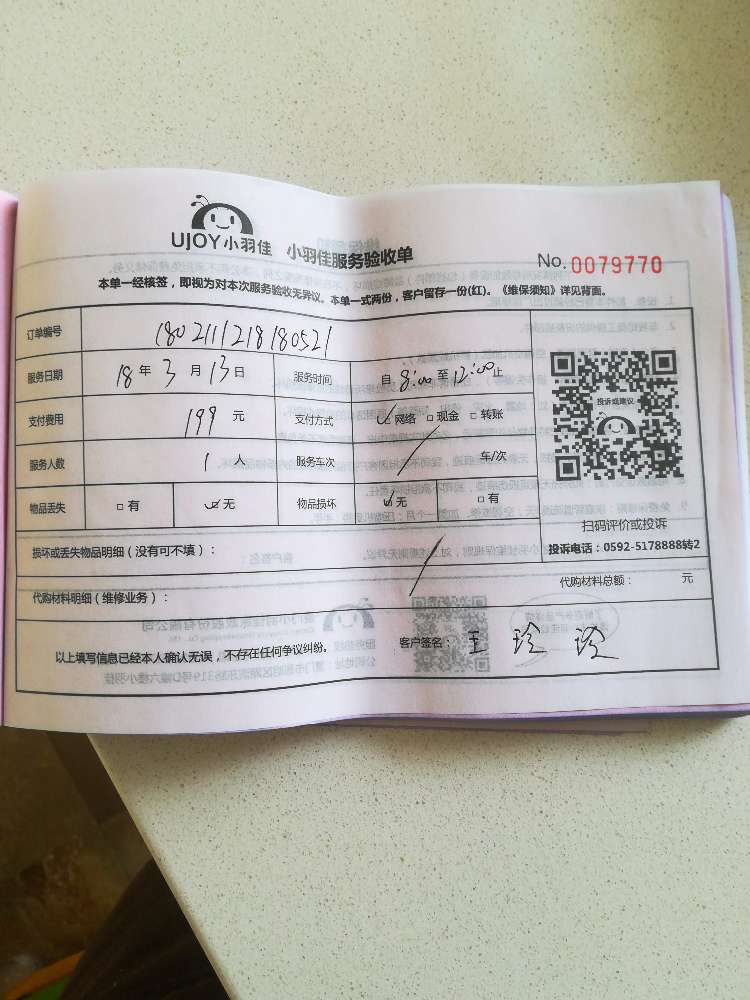 UJOY小羽佳 小羽佳服务验收单 No. 0079770
本单一经核签，即视为对本次服务验收无异议。本单一式两份，客户留存一份(红)。《维保须知》详见背面。
订单编号 1802111218180521
服务日期 18 年 3 月 13 日 服务时间 自 8:00 至 12:00 止
支付费用 199 元 支付方式 ☑ 网络 □ 现金 □ 转账
服务人数 1 人 服务车次 / 车/次
物品丢失 □ 有 ☑ 无 物品损坏 ☑ 无 □ 有
投诉或建议
扫码评价或投诉
投诉电话：0592-5178888转2
损坏或丢失物品明细（没有可不填）：
代购材料明细（维修业务）： / 代购材料总额： 元
以上填写信息已经本人确认无误，不存在任何争议纠纷。 客户签名： 王玲玲